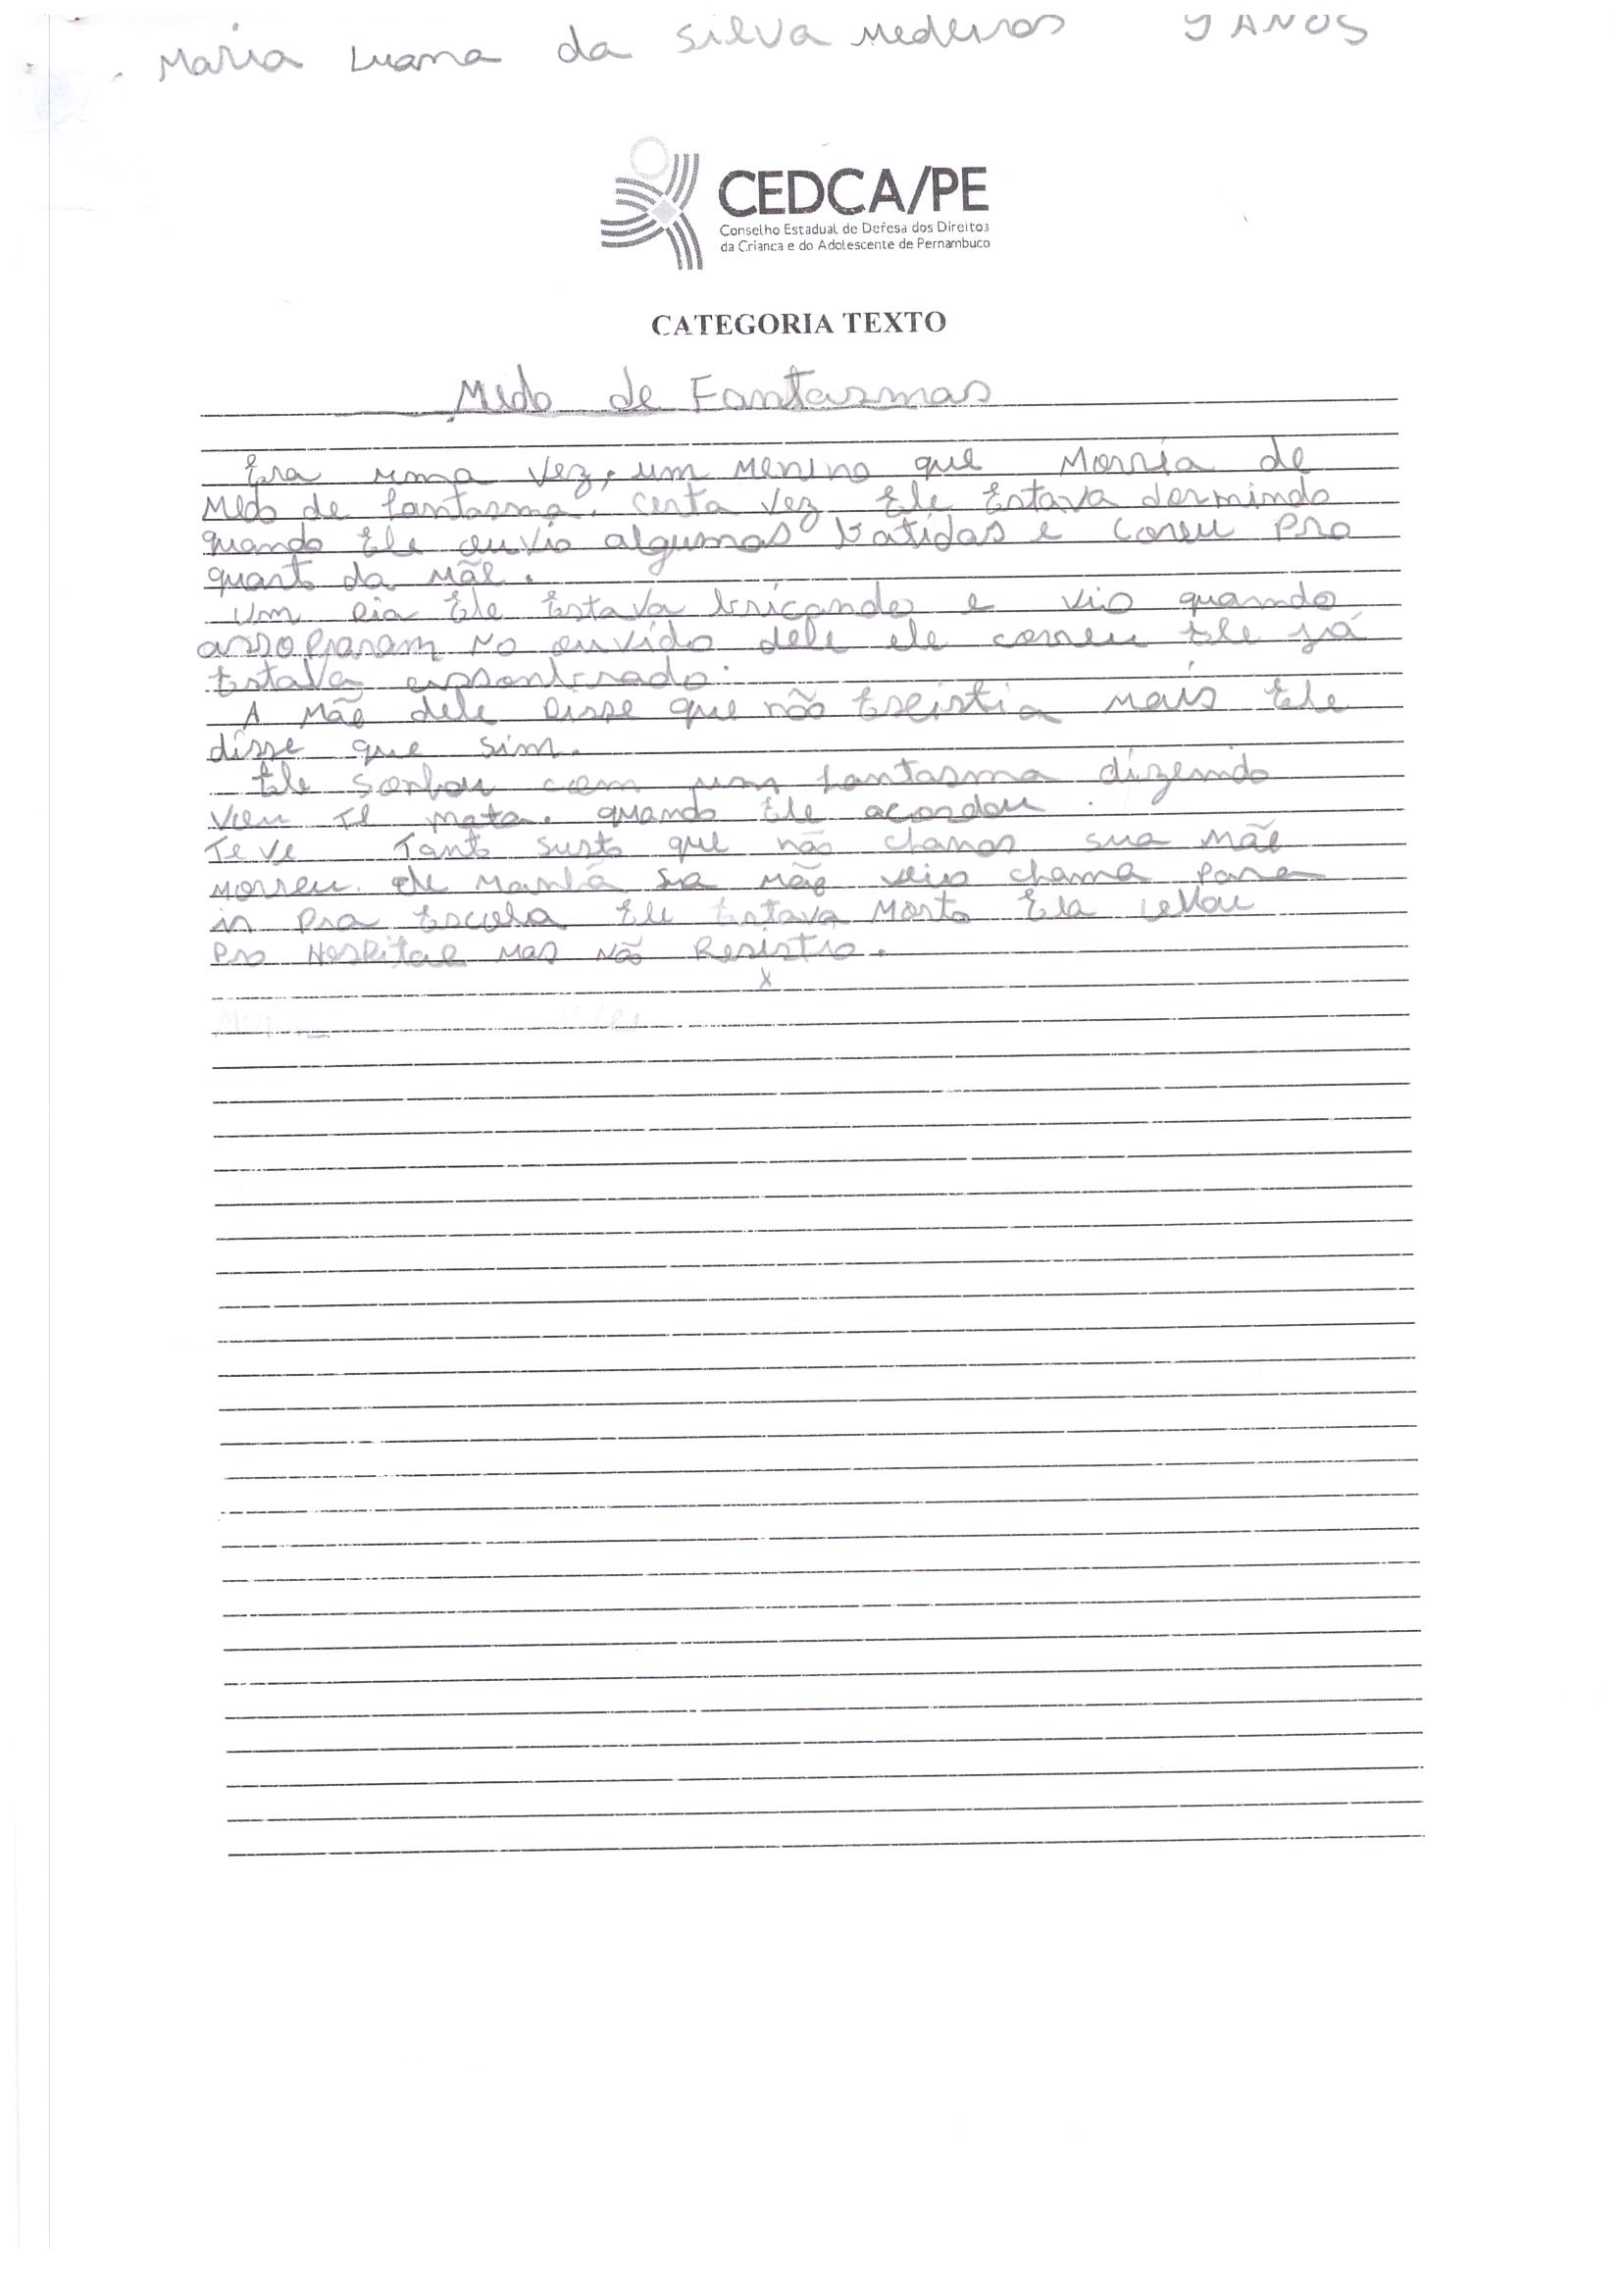 Maria Luana da Silva Medeiros 9 ANOS
CEDCA/PE
Conselho Estadual de Defesa dos Direitos
da Criança e do Adolescente de Pernambuco
CATEGORIA TEXTO
Medo de Fantasmas
Era uma vez, um menino que Morria de
Medo de fantasma. Certa vez Ele Estava dormindo
quando Ele ouvio algumas batidas e coreu pro
quarto da mãe.
Um dia Ele Estava bricando e vio quando
assopraram no ouvido dele ele correu Ele já
Estava
A Mãe dele disse que não Esistia mais Ele
disse que sim.
Ele sonhou com um fantasma dizendo
vou Te mata. quando Ele acordou
Teve Tanto susto que não chamou sua mãe
morreu. de manhã sua mãe veio chama para
ir pra Escola Ele Estava Morto Ela levou
pro Hospital mas não Resistio.
x